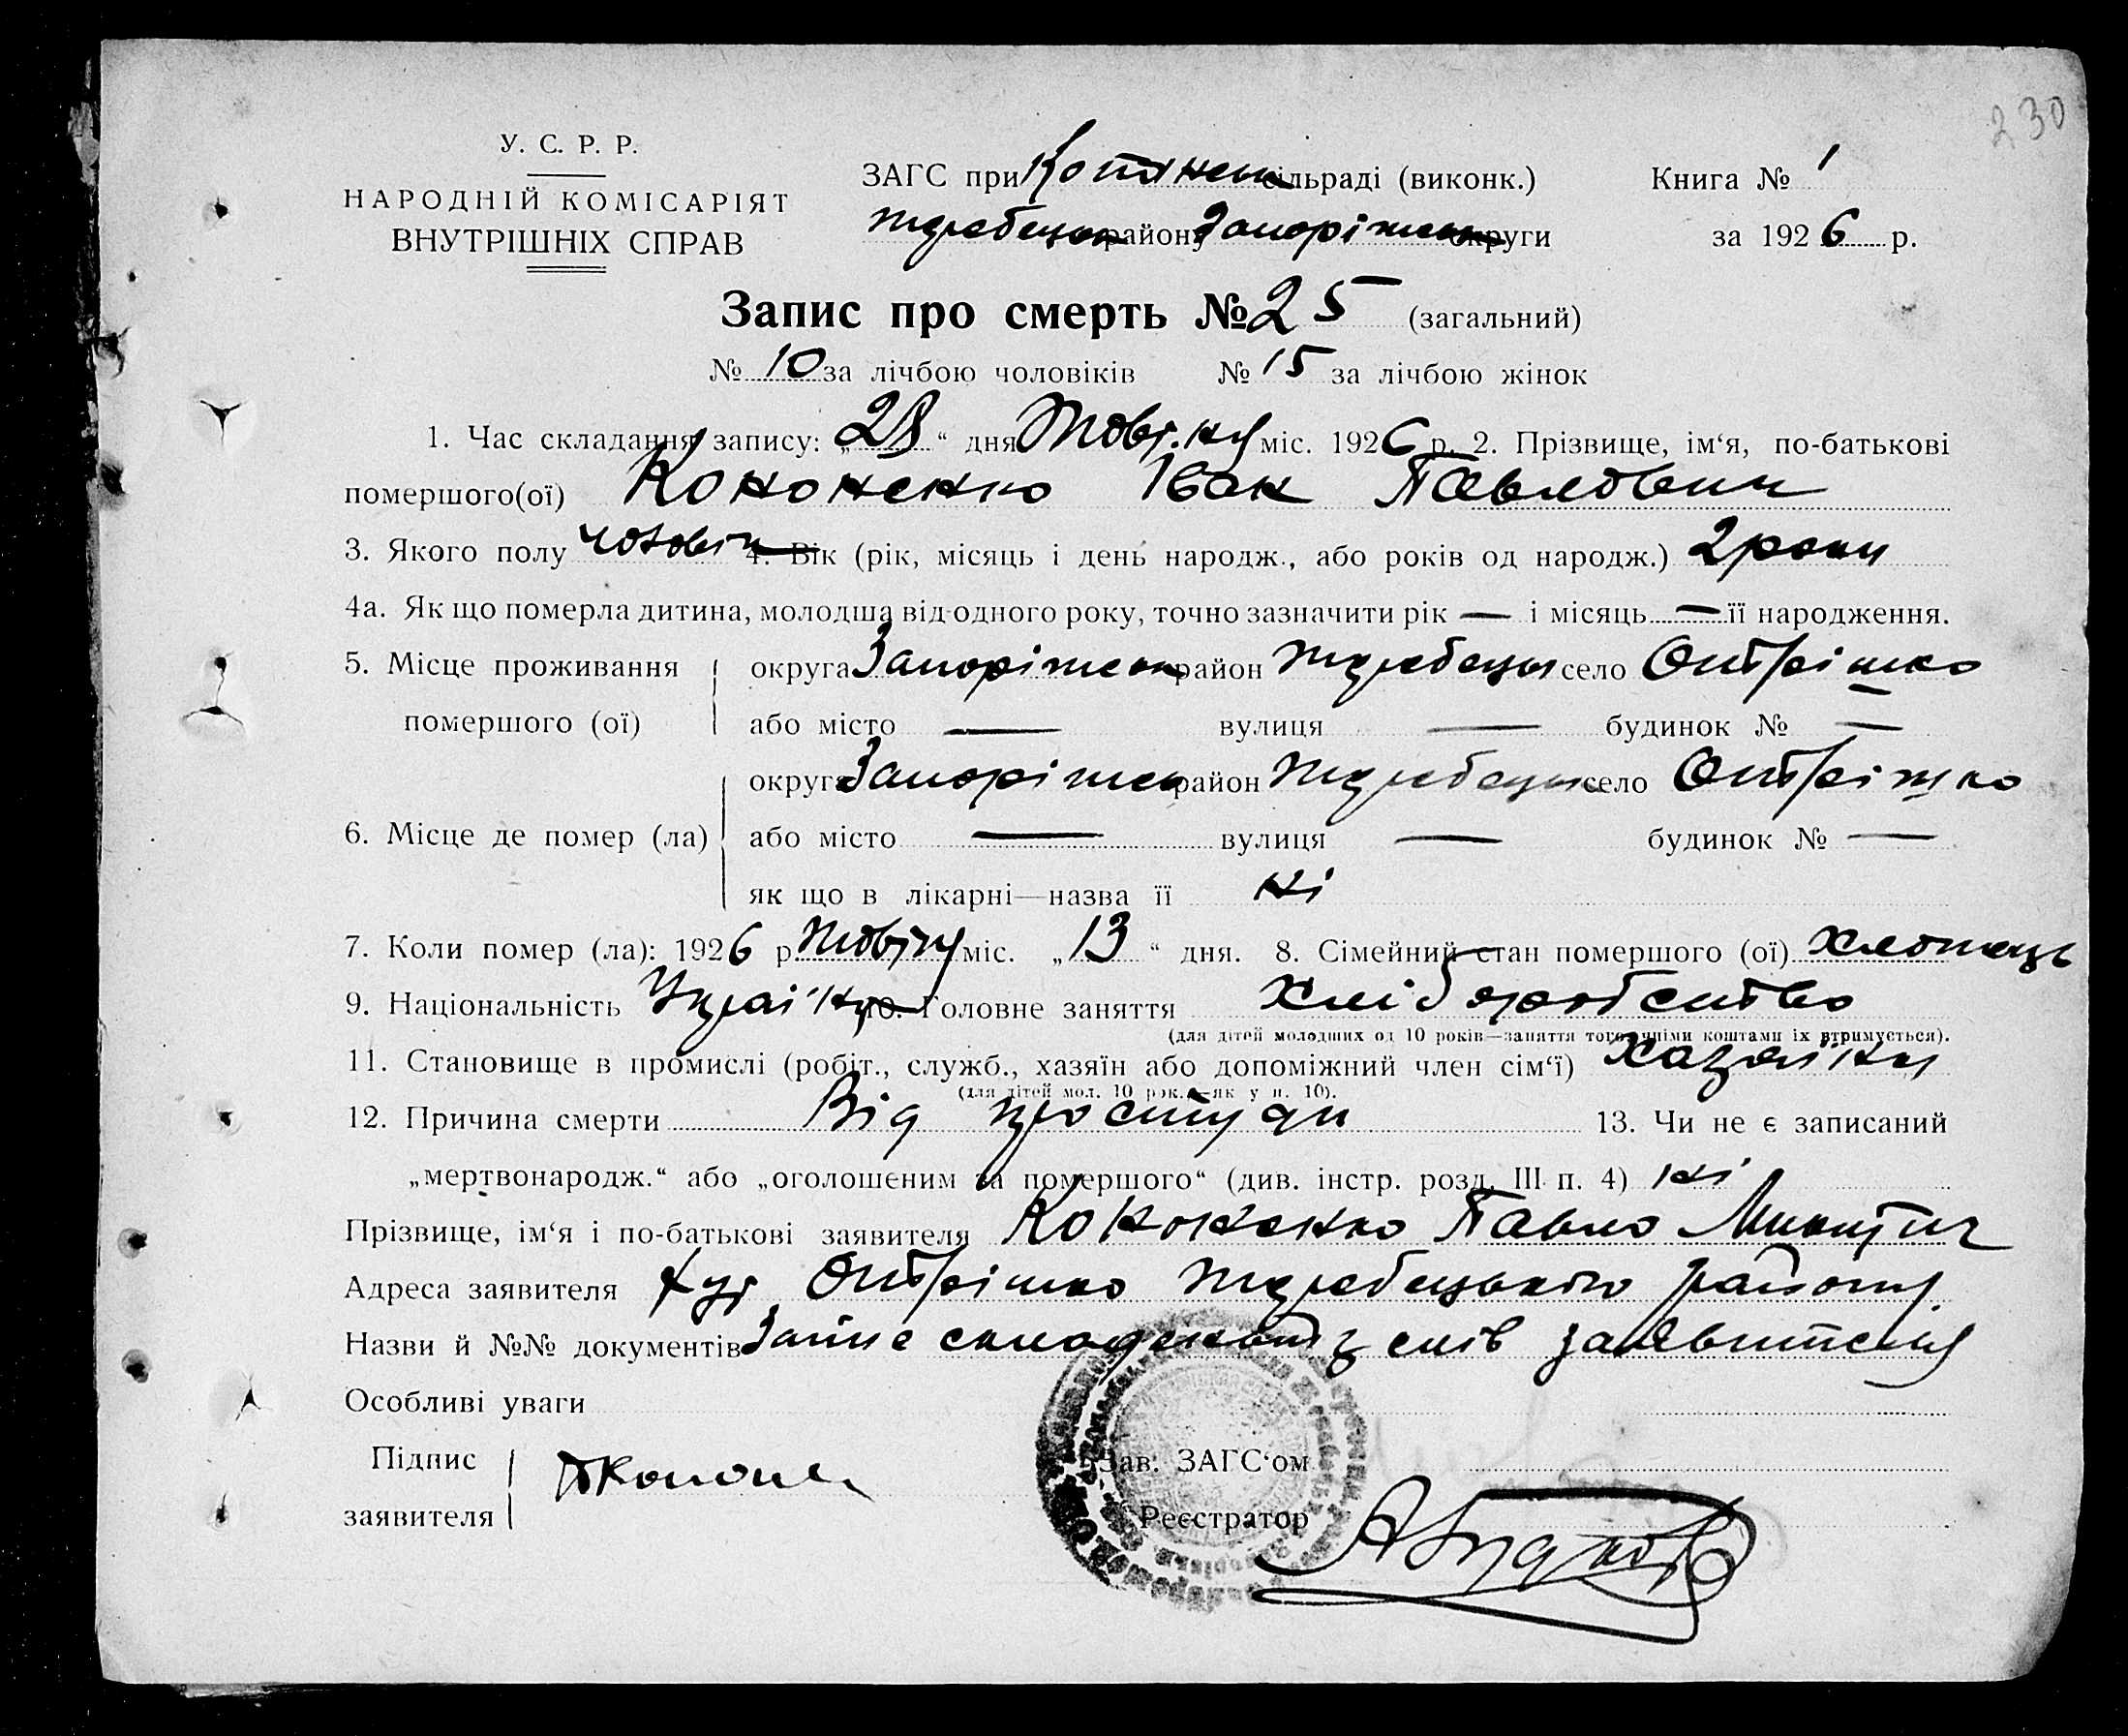 230
У. С. Р. Р.
НАРОДНІЙ КОМІСАРІЯТ
ВНУТРІШНІХ СПРАВ
ЗАГС при Копанськ сільраді (виконк.)
Жеребецьк району Запоріжськ округи
Книга № 1
за 1926 р.
Запис про смерть № 25 (загальний)
№ 10 за лічбою чоловіків № 15 за лічбою жінок
1. Час складання запису: „28“ дня Жовт.ня міс. 1926 р. 2. Прізвище, ім‘я, по-батькові
помершого(ої) Кононенко Іван Павлович
3. Якого полу чоловіч 4. Вік (рік, місяць і день народж., або років од народж.) 2 роки
4а. Як що померла дитина, молодша від одного року, точно зазначити рік — і місяць — її народження.
5. Місце проживання округа Запоріжськ район Жеребецьк село
помершого (ої) або місто — вулиця — будинок № —
округа Запоріжськ район Жеребецьк село
6. Місце де помер (ла) або місто — вулиця — будинок № —
як що в лікарні—назва її ні
7. Коли помер (ла): 1926 р. Жовтня міс. „13“ дня. 8. Сімейний стан помершого (ої) хлопець
9. Національність Украін 10. Головне заняття хліборобство
(для дітей молодших од 10 років—заняття того, чніми коштами їх втримується).
11. Становище в промислі (робіт., служб., хазяїн або допоміжний член сім‘ї) хазяїн
(для дітей мол. 10 рок.—як у п. 10).
12. Причина смерти Від простуди 13. Чи не є записаний
„мертвонародж.“ або „оголошеним за помершого“ (див. інстр. розд. III п. 4) ні
Прізвище, ім‘я і по-батькові заявителя Кононенко Павло Микитич
Адреса заявителя хут. Жеребецького району.
Назви й №№ документів Запис складений з слів заявителя
Особливі уваги
Підпис
заявителя
Зав. ЗАГС‘ом
Реєстратор